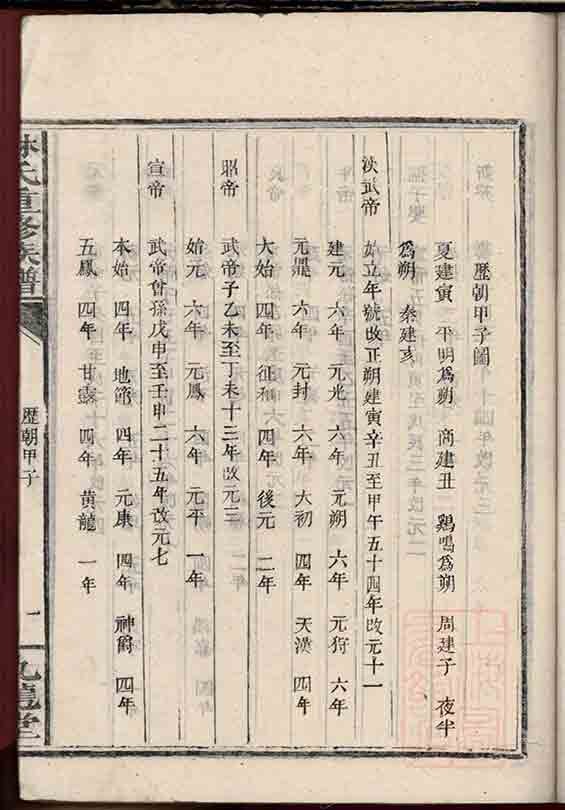 歷朝甲子圖
夏建寅 平明為朔 商建丑 鷄鳴為朔 周建子 夜半
為朔 秦建亥
漢武帝 始立年號改正朔建寅辛丑至甲午五十四年改元十一
建元 六年 元光 六年 元朔 六年 元狩 六年
元鼎 六年 元封 六年 太初 四年 天漢 四年
太始 四年 征和 四年 後元 二年
昭帝 武帝子乙未至丁未十三年改元三
始元 六年 元鳳 六年 元平 一年
宣帝 武帝曾孫戊申至壬申二十五年改元七
本始 四年 地節 四年 元康 四年 神爵 四年
五鳳 四年 甘露 四年 黃龍 一年
林氏重修族譜
歷朝甲子
一
九龍堂